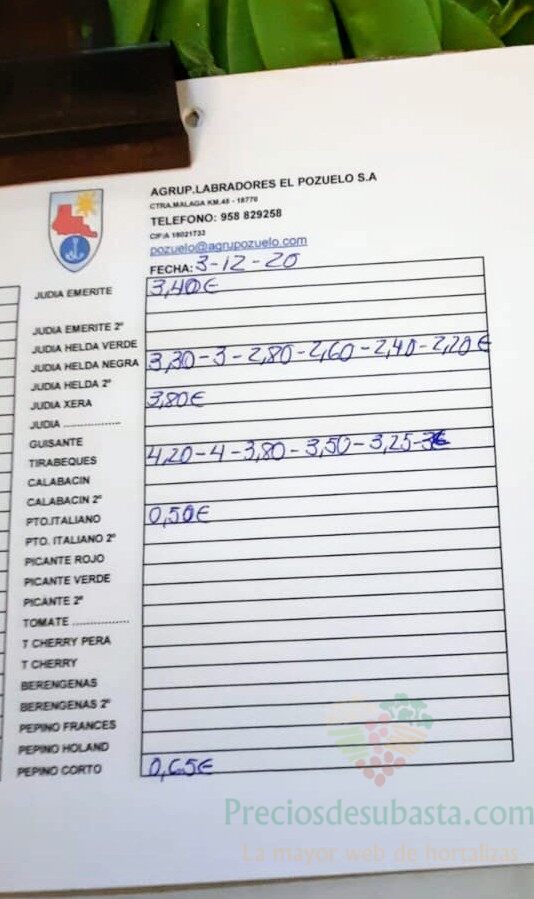 AGRUP.LABRADORES EL POZUELO S.A
CTRA.MALAGA KM.45 - 18770
TELEFONO: 958 829258
CIF/A 18021733
pozuelo@agrupozuelo.com
FECHA: 3-12-20
JUDIA EMERITE 3,40€
JUDIA EMERITE 2º
JUDIA HELDA VERDE
JUDIA HELDA NEGRA 3,30-3-2,80-2,60-2,40-2,20€
JUDIA HELDA 2º
JUDIA XERA 3,80€
JUDIA ..................
GUISANTE
TIRABEQUES 4,20-4-3,80-3,50-3,25-3€
CALABACIN
CALABACIN 2º
PTO.ITALIANO 0,50€
PTO. ITALIANO 2º
PICANTE ROJO
PICANTE VERDE
PICANTE 2º
TOMATE ..................
T CHERRY PERA
T CHERRY
BERENGENAS
BERENGENAS 2º
PEPINO FRANCES
PEPINO HOLAND
PEPINO CORTO 0,65€
Preciosdesubasta.com
La mayor web de hortalizas